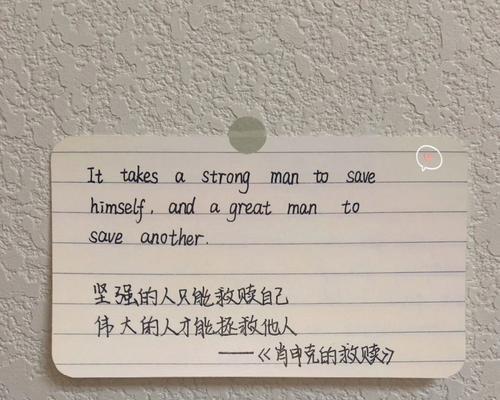 It takes a strong man to save
himself, and a great man to
save another.
坚强的人只能救赎自己
伟大的人才能拯救他人
——《肖申克的救赎》